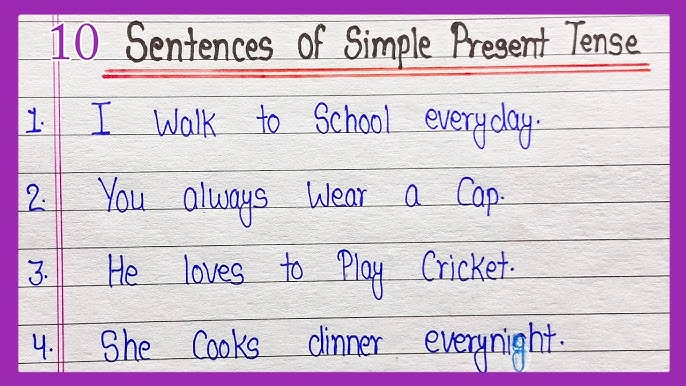 10 Sentences of Simple Present Tense
1. I Walk to School everyday.
2. You always Wear a Cap.
3. He loves to Play Cricket.
4. She Cooks dinner everynight.